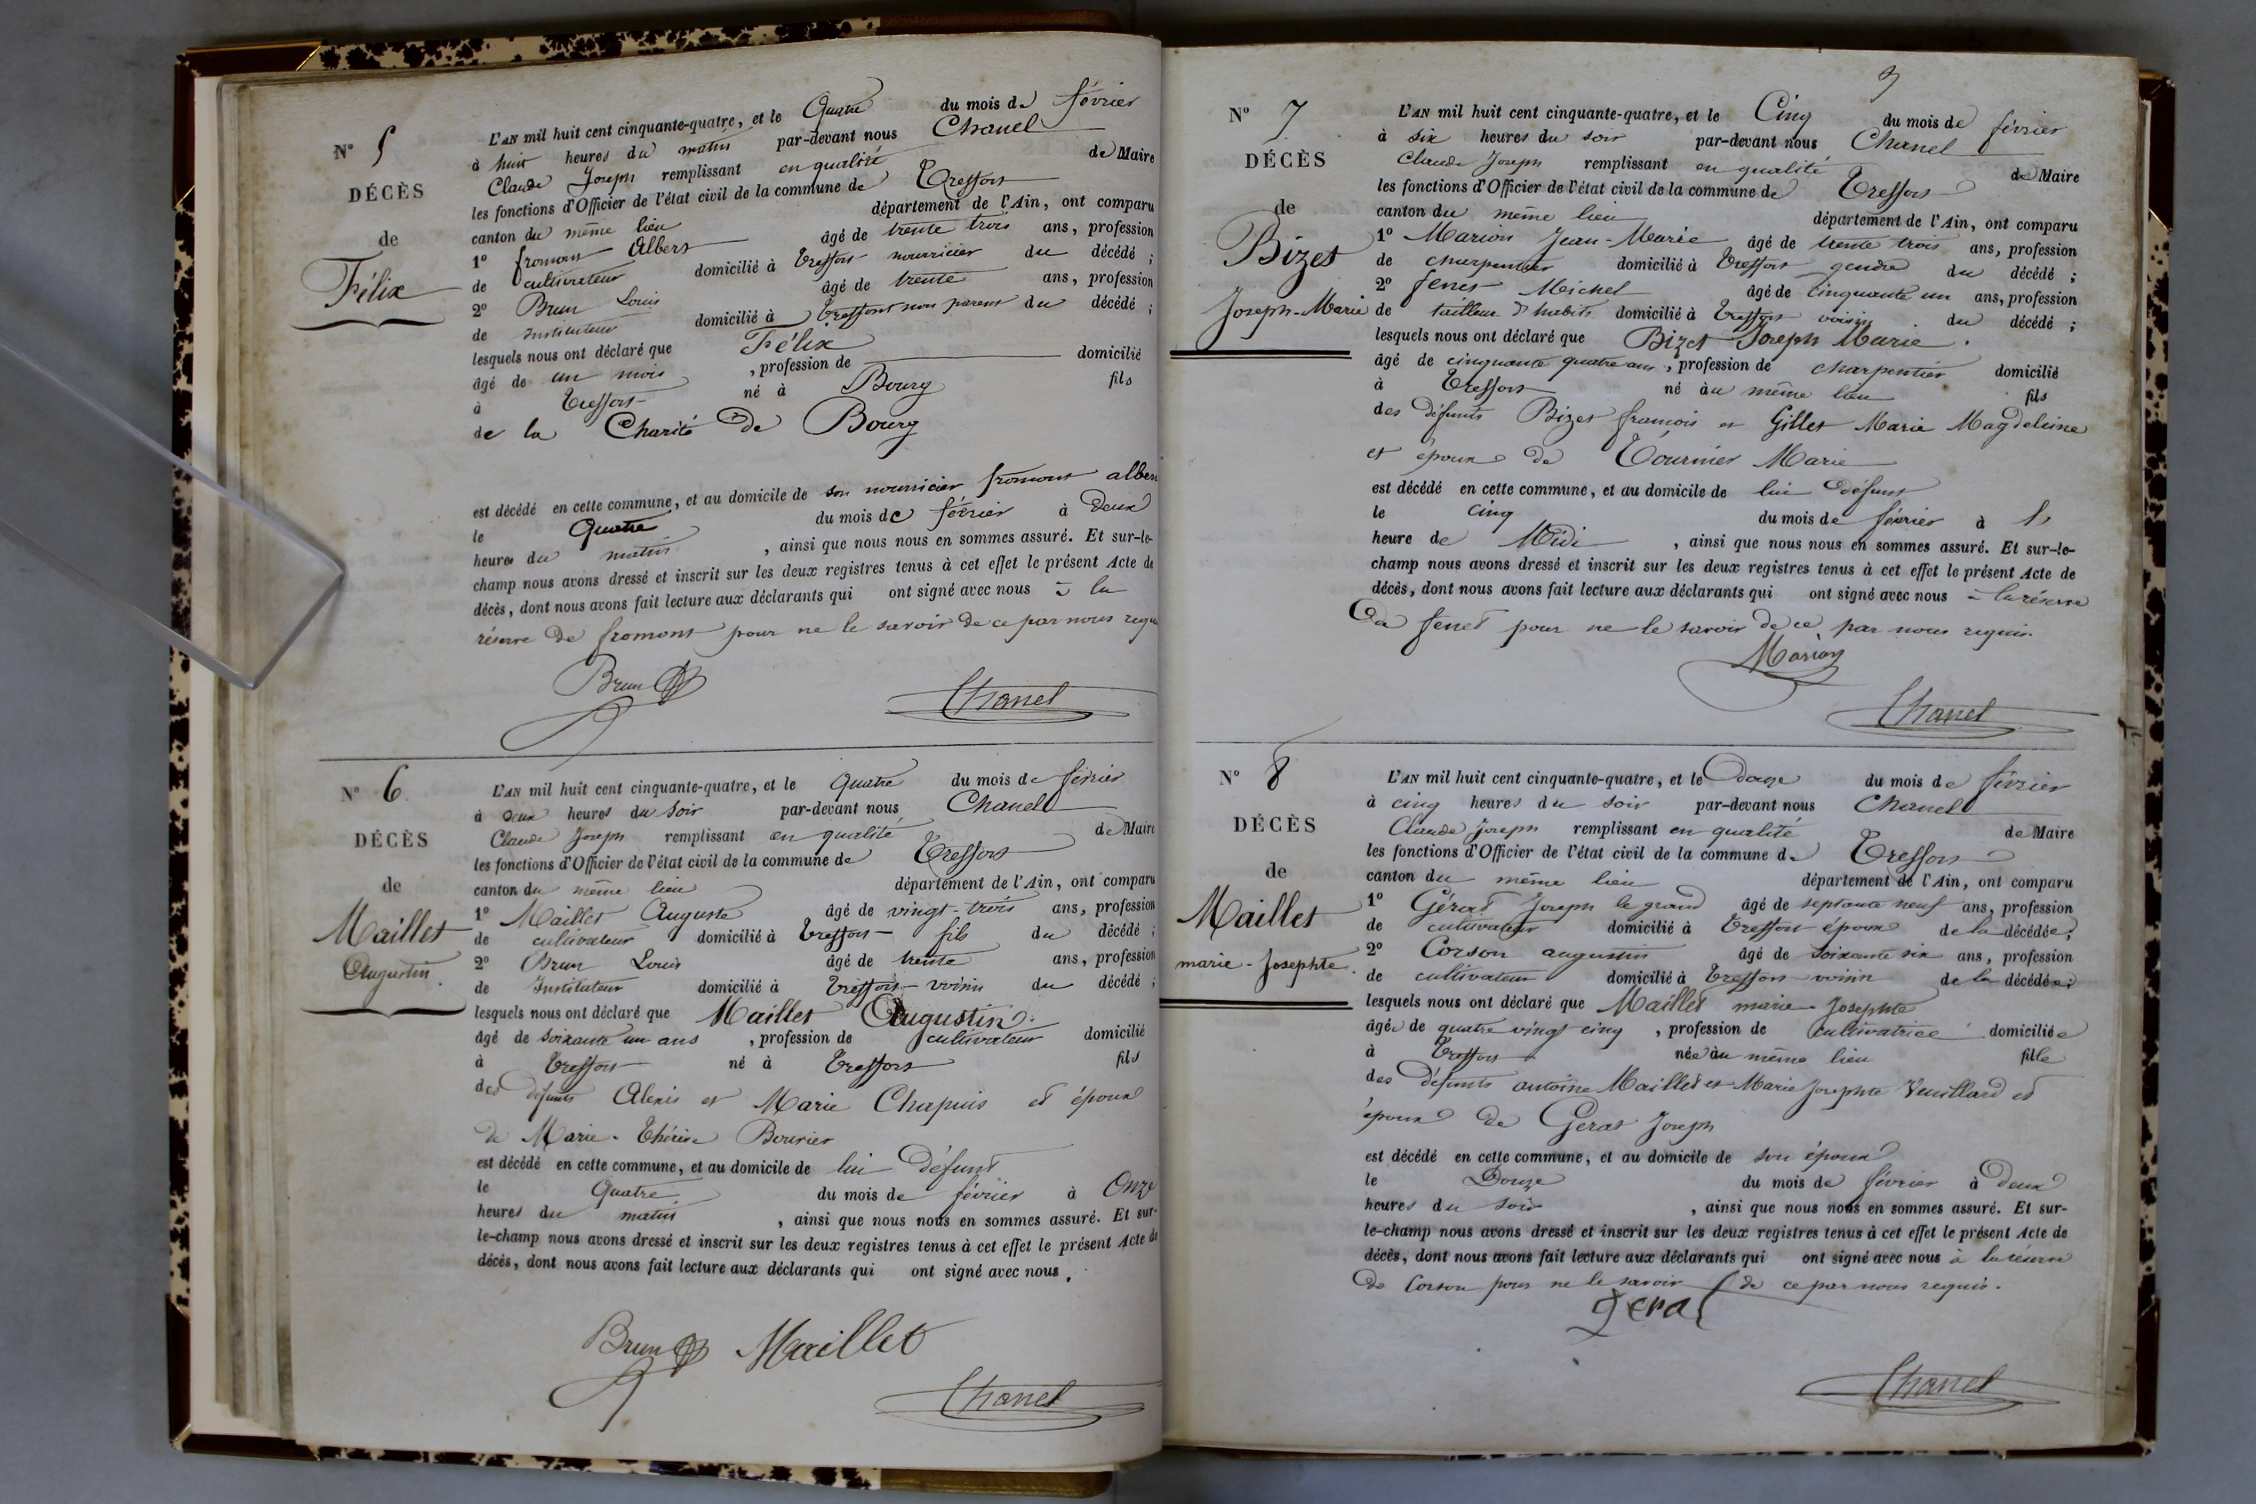 N° 5
DÉCÈS
de
Félix
L'AN mil huit cent cinquante-quatre, et le Quatre du mois de février
à huit heures du matin par-devant nous Chanel
Claude Joseph remplissant en qualité de Maire
les fonctions d'Officier de l'état civil de la commune de Treffort
canton du même lieu département de l'Ain, ont comparu
1° fromont Albert âgé de trente trois ans, profession
de cultivateur domicilié à Treffort nourricier du décédé ;
2° Brun Louis âgé de trente ans, profession
de instituteur domicilié à Treffort non parent du décédé ;
lesquels nous ont déclaré que Félix
âgé de un mois , profession de domicilié
à Treffort né à Bourg fils
de la Charité de Bourg
est décédé en cette commune, et au domicile de son nourricier fromont albert
le Quatre du mois de février à Deux
heures du matin , ainsi que nous nous en sommes assuré. Et sur-le-
champ nous avons dressé et inscrit sur les deux registres tenus à cet effet le présent Acte de
décès, dont nous avons fait lecture aux déclarants qui ont signé avec nous à la
réserve de fromont pour ne le savoir de ce par nous requis
Brun
Chanel
N° 6
DÉCÈS
de
Maillet
Augustin
L'AN mil huit cent cinquante-quatre, et le Quatre du mois de février
à deux heures du soir par-devant nous Chanel
Claude Joseph remplissant en qualité de Maire
les fonctions d'Officier de l'état civil de la commune de Treffort
canton du même lieu département de l'Ain, ont comparu
1° Maillet Auguste âgé de vingt-trois ans, profession
de cultivateur domicilié à Treffort fils du décédé ;
2° Brun Louis âgé de trente ans, profession
de instituteur domicilié à Treffort voisin du décédé ;
lesquels nous ont déclaré que Maillet Augustin
âgé de soixante un ans , profession de cultivateur domicilié
à Treffort né à Treffort fils
des défunts Alexis et Marie Chapuis et époux
de Marie-Thérèse Bouvier
est décédé en cette commune, et au domicile de lui Défunt
le Quatre du mois de février à Onze
heures du matin , ainsi que nous nous en sommes assuré. Et sur-
le-champ nous avons dressé et inscrit sur les deux registres tenus à cet effet le présent Acte de
décès, dont nous avons fait lecture aux déclarants qui ont signé avec nous.
Brun Maillet
Chanel
N° 7
DÉCÈS
de
Bizet
Joseph-Marie
L'AN mil huit cent cinquante-quatre, et le Cinq du mois de février
à six heures du soir par-devant nous Chanel
Claude Joseph remplissant en qualité de Maire
les fonctions d'Officier de l'état civil de la commune de Treffort
canton du même lieu département de l'Ain, ont comparu
1° Marion Jean-Marie âgé de trente trois ans, profession
de charpentier domicilié à Treffort gendre du décédé ;
2° fenet Michel âgé de cinquante un ans, profession
de tailleur d'habits domicilié à Treffort voisin du décédé ;
lesquels nous ont déclaré que Bizet Joseph Marie.
âgé de cinquante quatre ans, profession de charpentier domicilié
à Treffort né au même lieu fils
des défunts Bizet françois et Gillet Marie Magdeleine
et époux de Tournier Marie
est décédé en cette commune, et au domicile de lui défunt
le cinq du mois de février à l'
heure de Midi , ainsi que nous nous en sommes assuré. Et sur-le-
champ nous avons dressé et inscrit sur les deux registres tenus à cet effet le présent Acte de
décès, dont nous avons fait lecture aux déclarants qui ont signé avec nous à la réserve
de fenet pour ne le savoir de ce par nous requis.
Marion
Chanel
N° 8
DÉCÈS
de
Maillet
marie-Josephte.
L'AN mil huit cent cinquante-quatre, et le douze du mois de février
à cinq heures du soir par-devant nous Chanel
Claude Joseph remplissant en qualité de Maire
les fonctions d'Officier de l'état civil de la commune de Treffort
canton du même lieu département de l'Ain, ont comparu
1° Géras Joseph le grand âgé de septante neuf ans, profession
de cultivateur domicilié à Treffort époux de la décédée;
2° Corson augustin âgé de soixante six ans, profession
de cultivateur domicilié à Treffort voisin de la décédée;
lesquels nous ont déclaré que Maillet marie-Josephte
âgée de quatre vingt cinq , profession de cultivatrice domiciliée
à Treffort née au même lieu fille
des défunts antoine Maillet et Marie Josephte Vuillard et
épouse de Geras Joseph
est décédé en cette commune, et au domicile de son époux
le Douze du mois de février à Deux
heures du soir , ainsi que nous nous en sommes assuré. Et sur-
le-champ nous avons dressé et inscrit sur les deux registres tenus à cet effet le présent Acte de
décès, dont nous avons fait lecture aux déclarants qui ont signé avec nous à la réserve
de Corson pour ne le savoir de ce par nous requis.
geras
Chanel